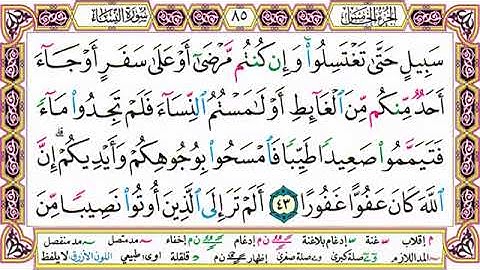 الجزء الخامس ٨٥ سورة النساء
سَبِيلٍ حَتَّىٰ تَغْتَسِلُوا۟ ۚ وَإِن كُنتُم مَّرْضَىٰٓ أَوْ عَلَىٰ سَفَرٍ أَوْ جَآءَ
أَحَدٌ مِّنكُم مِّنَ ٱلْغَآئِطِ أَوْ لَـٰمَسْتُمُ ٱلنِّسَآءَ فَلَمْ تَجِدُوا۟ مَآءً
فَتَيَمَّمُوا۟ صَعِيدًا طَيِّبًا فَٱمْسَحُوا۟ بِوُجُوهِكُمْ وَأَيْدِيكُمْ ۗ إِنَّ
ٱللَّهَ كَانَ عَفُوًّا غَفُورًا ٤٣ أَلَمْ تَرَ إِلَى ٱلَّذِينَ أُوتُوا۟ نَصِيبًا مِّنَ
م إقلاب غنة إدغام بلاغنة ن م إدغام ن م إخفاء مد متصل مد منفصل
المد اللازم صلة كبرى صلة صغرى إظهار ن م قلقلة اوى: طبيعي اللون الأزرق لا يلفظ